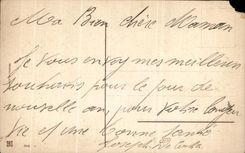 Ma Bien chère Maman
Je vous envoy mes meilleurs
souhaits pour le jour de
nouvelle an, pour votre longue
vie et une bonne santé
Joseph